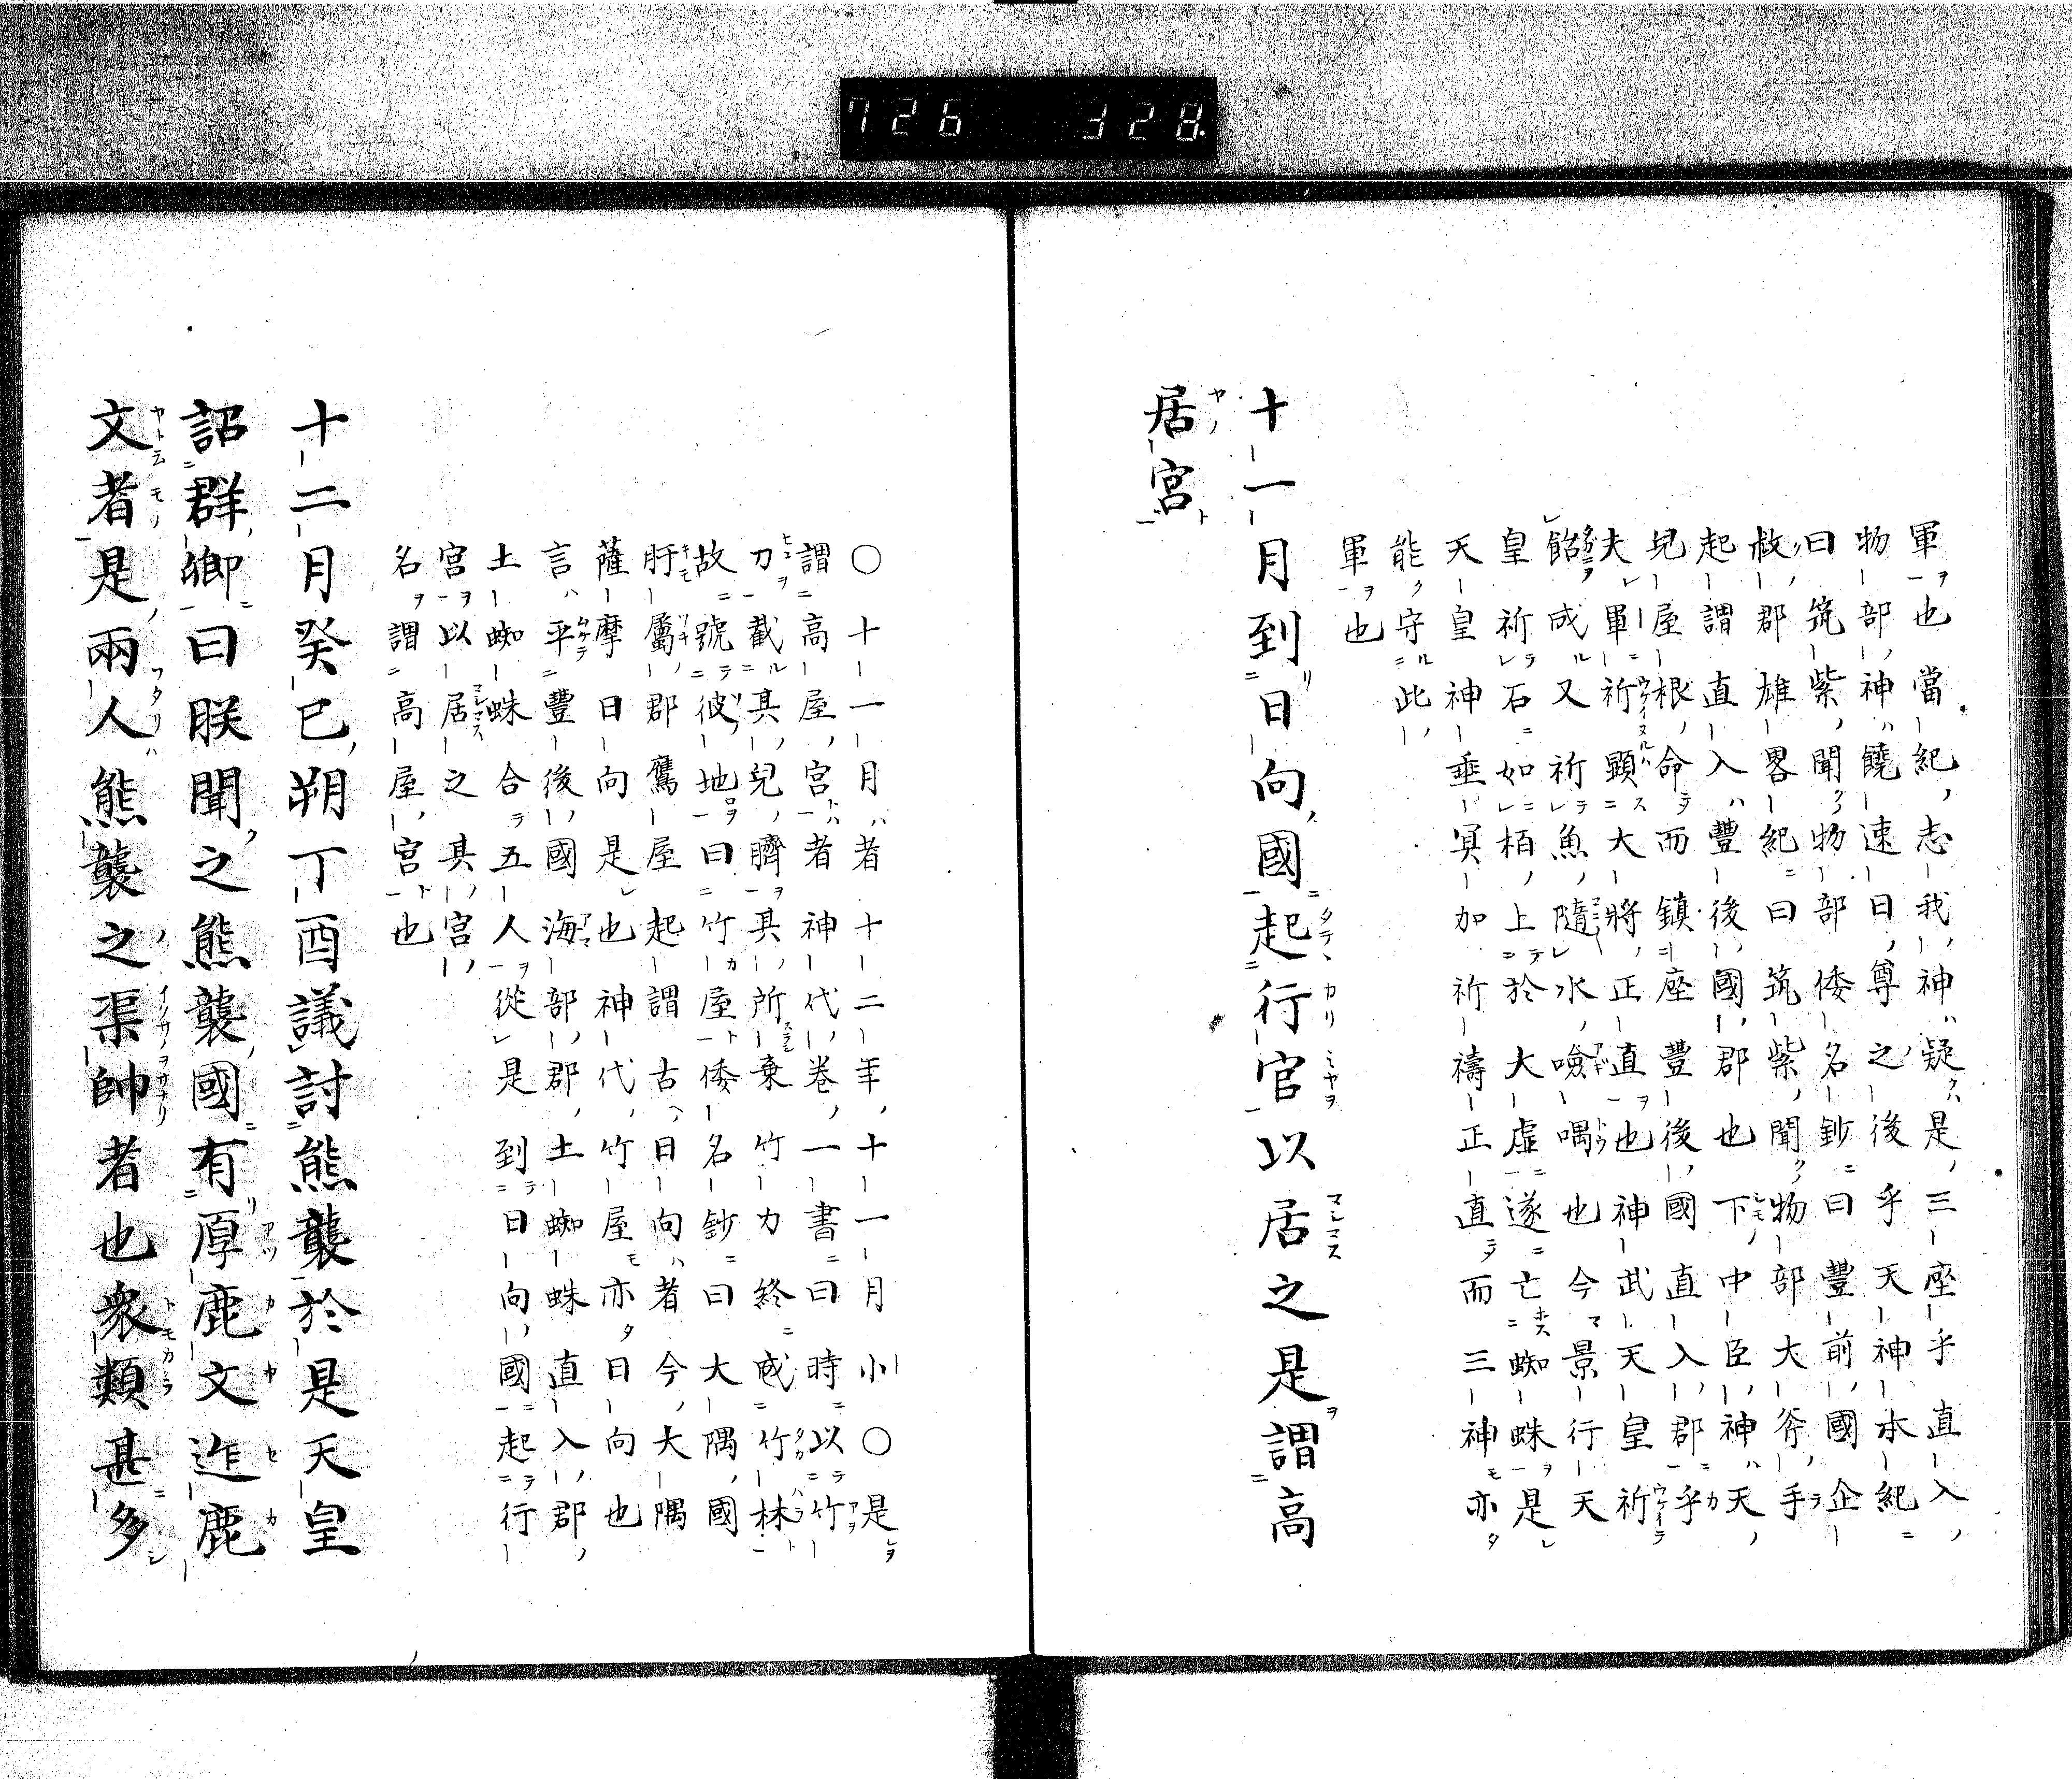 726 328
軍也當紀志我神疑是三座乎直入
物部神饒速日尊之後乎天神本紀
曰筑紫聞物部倭名鈔曰豐前國企
救郡雄畧紀曰筑紫聞物部大斧手
起謂直入豐後國郡也下中臣神天
兒屋根命而鎮座豐後國直入郡乎
夫軍祈顕大將正直也神武天皇祈
飴成又祈魚隨水噞喁也今景行天
皇祈石如栢上於大虛遂亡蜘蛛是
天皇神垂冥加祈禱正直而三神亦
能守此
軍也
十一月到日向國起行宮以居之是謂高
居宮
〇十一月者十二年十一月小〇是
謂高屋宮者神代卷一書曰時以竹
刀截其兒臍其所棄竹刀終成竹林
故號彼地曰竹屋倭名鈔曰大隅國
肝屬郡鷹屋起謂古日向者今大隅
薩摩日向是也神代竹屋亦日向也
言平豐後國海部郡土蜘蛛直入郡
土蜘蛛合五人從是到日向國起行
宮以居之其宮
名謂高屋宮也
十二月癸巳朔丁酉議討熊襲於是天皇
詔群卿曰朕聞之熊襲國有厚鹿文迮鹿
文者是兩人熊襲之渠帥者也衆類甚多